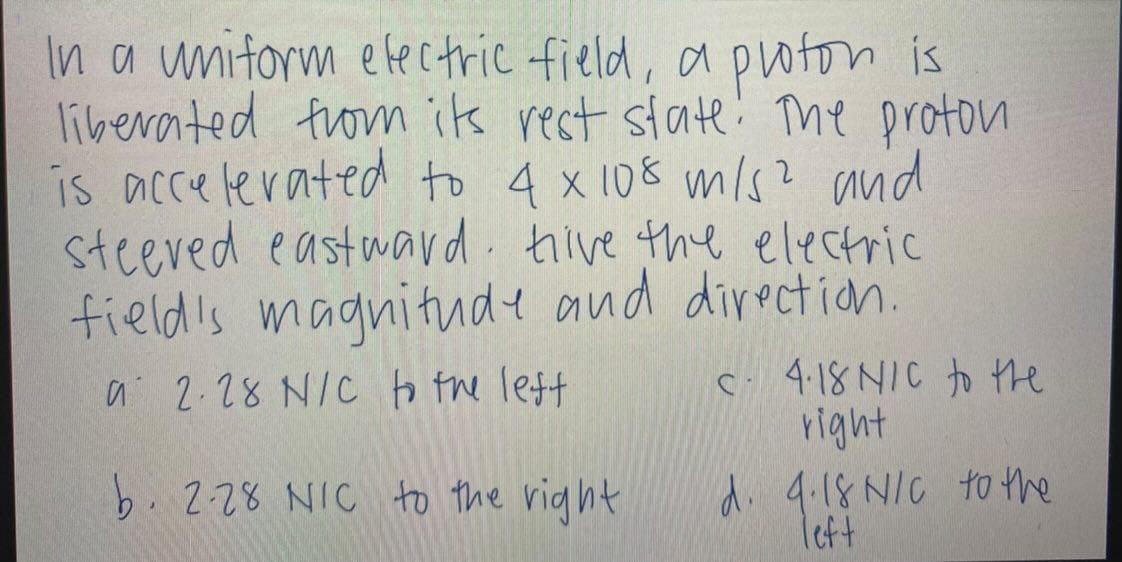 In a uniform electric field, a proton is
liberated from its rest state. The proton
is accelerated to 4 x 10⁸ m/s² and
steered eastward. Give the electric
field's magnitude and direction.
a. 2.28 N/C to the left
c. 4.18 N/C to the
right
b. 2.28 N/C to the right
d. 4.18 N/C to the
left